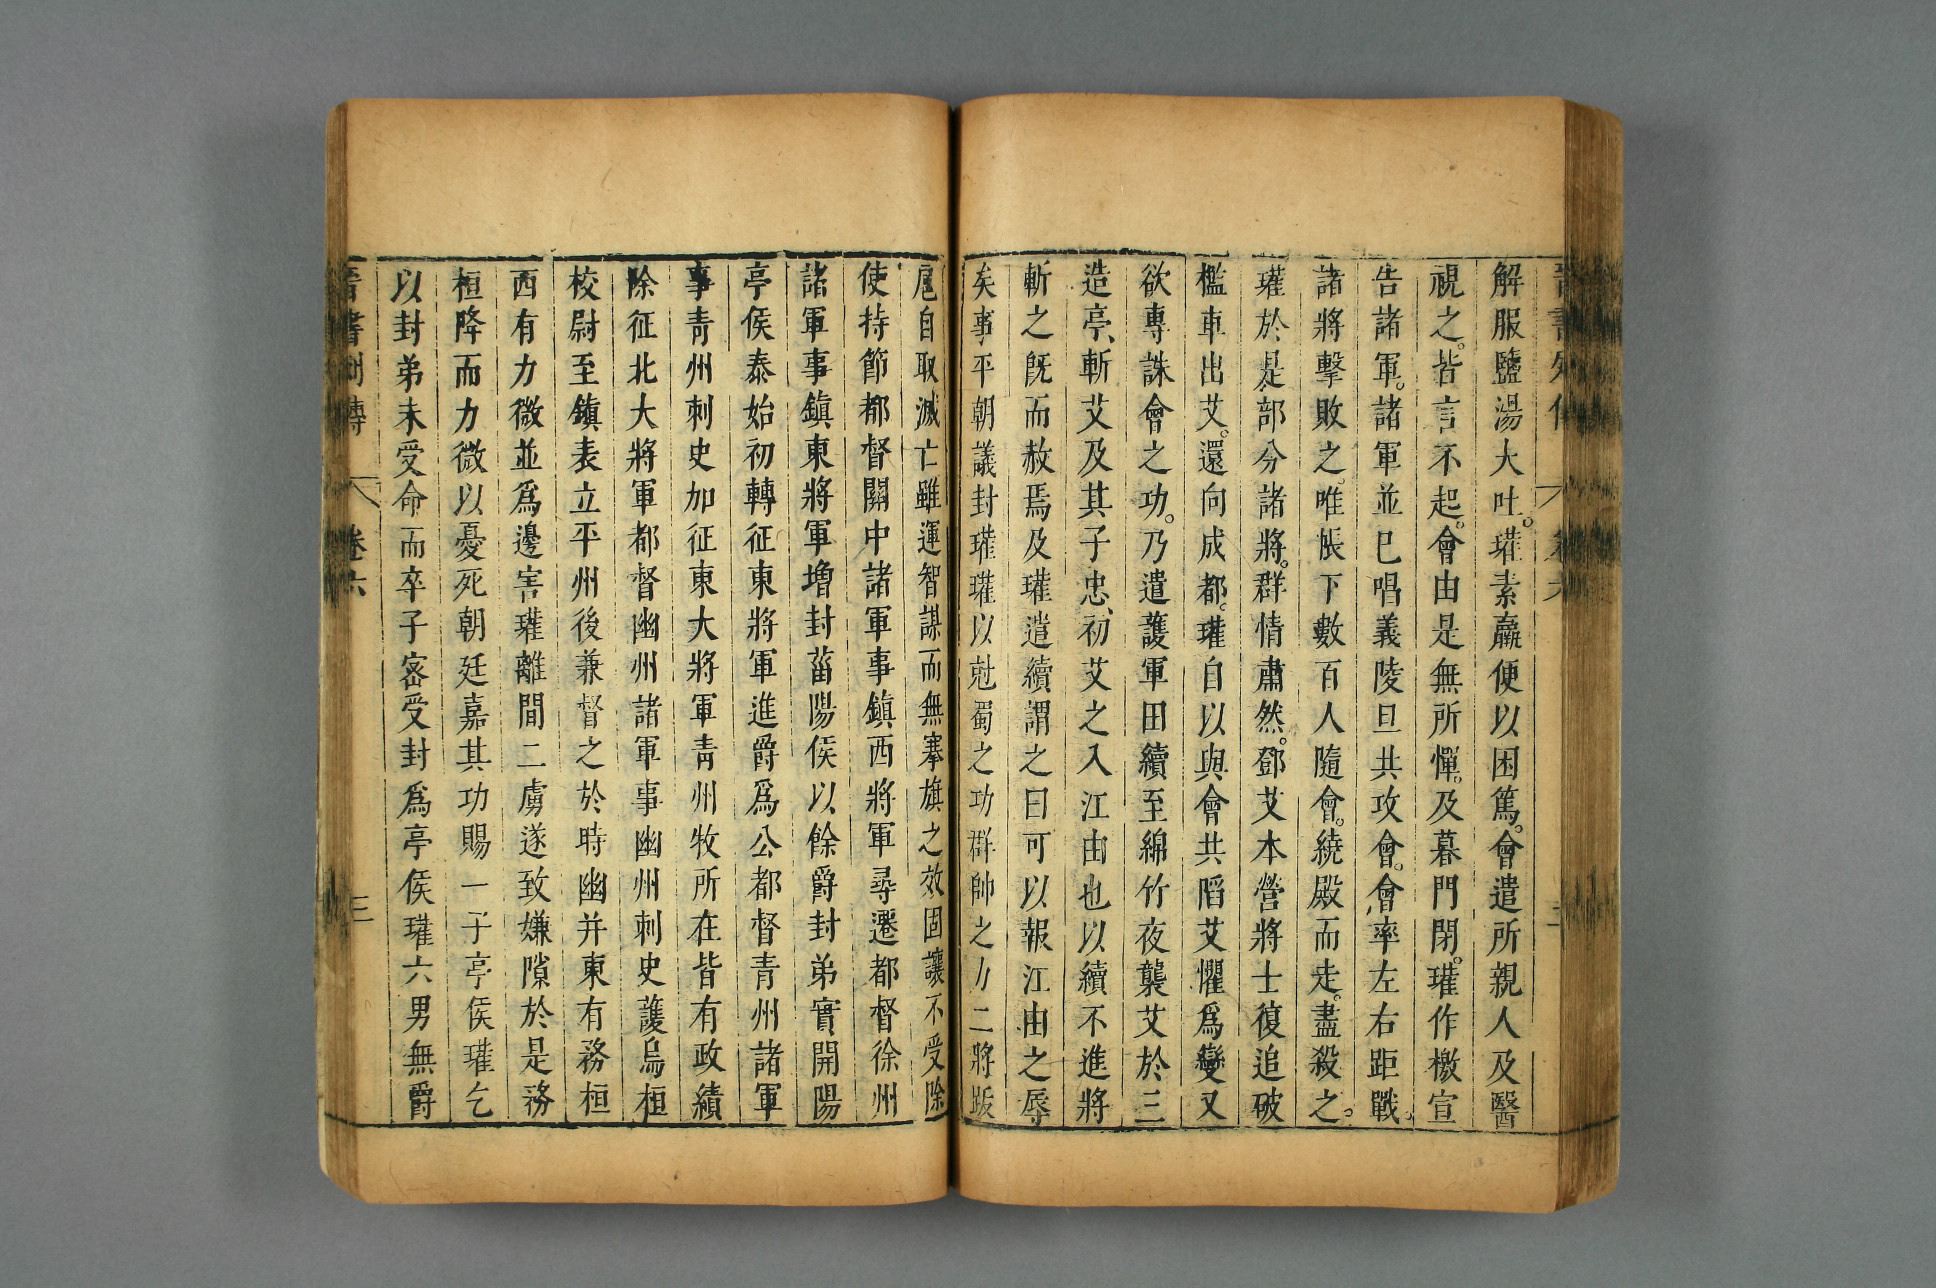 解服鹽湯大吐。瓘素羸便以困篤。會遣所親人及醫
視之。皆言不起。會由是無所憚。及暮門閉。瓘作檄宣
告諸軍。諸軍並已唱義陵旦共攻會。會率左右距戰。
諸將擊敗之。唯帳下數百人隨會。繞殿而走。盡殺之。
瓘於是部分諸將。群情肅然。鄧艾本營將士復追破
檻車出艾。還向成都。瓘自以與會共陷艾懼爲變又
欲專誅會之功。乃遣護軍田續至綿竹夜襲艾於三
造亭、斬艾及其子忠、初艾之入江由也以續不進將
斬之既而赦焉及瓘遣續謂之曰可以報江由之辱
矣事平朝議封瓘瓘以尅蜀之功群帥之力二將跋
扈自取滅亡雖運智謀而無搴旗之效固讓不受除
使持節都督關中諸軍事鎮西將軍尋遷都督徐州
諸軍事鎮東將軍增封菑陽侯以餘爵封弟實開陽
亭侯泰始初轉征東將軍進爵爲公都督青州諸軍
事青州刺史加征東大將軍青州牧所在皆有政績
除征北大將軍都督幽州諸軍事幽州刺史護烏桓
校尉至鎮表立平州後兼督之於時幽并東有務桓
西有力微並爲邊害瓘離間二虜遂致嫌隙於是務
桓降而力微以憂死朝廷嘉其功賜一子亭侯瓘乞
以封弟未受命而卒子密受封爲亭侯瓘六男無爵
晉書列傳 卷六 三